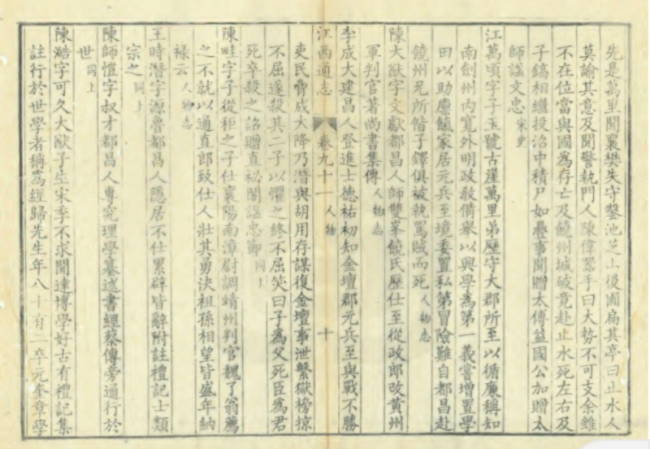 先是萬里聞襄樊失守鑿池芝山後圃扁其亭曰止水人
莫諭其意及聞警執門人陳偉器手曰大勢不可支余雖
不在位當與國為存亡及饒州城破竟赴止水死左右及
子鎬相繼投沼中積尸如疊事聞贈太傅益國公加贈太
師諡文忠宋史
江萬頃字子玉號古崖萬里弟歷守大郡所至以循廉稱如
南劍州內寬外明政教備舉以興學為第一義嘗增置學
田以助廪餼家居元兵至境委置私第冒險難自都昌赴
饒州兄所偕子鐸俱被執罵賊而死人物志
陳大猷字文獻都昌人師雙峯饒氏歷仕至從政郎改黃州
軍判官著尚書集傳人物志
李成大建昌人登進士德祐初知金壇郡元兵至與戰不勝
江西通志
卷九十一
人物
十
吏民脅成大降乃潛與胡用存謀復金壇事泄繫獄搒掠
不屈遂殺其二子以懼之終不屈笑曰子為父死臣為君
死卒殺之詔贈直祕閣諡忠節同上
陳畦字子從秬之子仕襄陽南漳尉調靖州判官魏了翁薦
之不就以通直郎致仕人壯其勇決祖孫相望皆盛年納
祿云人物志
王時潛字源魯都昌人隱居不仕累辟皆辭附註禮記士類
宗之同上
陳師愷字叔才都昌人專究理學纂述書經蔡傳旁通行於
世同上
陳澔字可久大猷子生宋季不求聞達博學好古有禮記集
註行於世學者稱為經歸先生年八十有二卒元奎章學